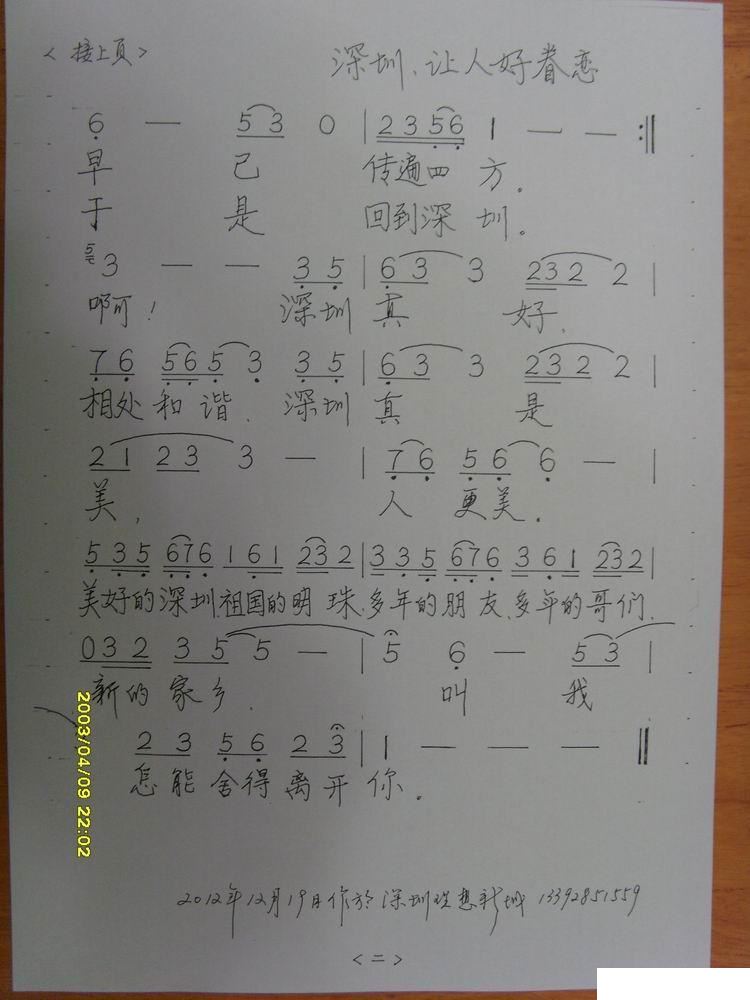 <接上页>
深圳，让人好眷恋
6 — 5 3 0 | 2 3 5 6 1 — — :||
早 已 传遍四方。
于 是 回到深圳。
5 3 — — 3 5 | 6 3 3 2 3 2 2 |
啊！ 深圳 真 好，
7 6 5 6 5 3 3 5 | 6 3 3 2 3 2 2 |
相处和谐，深圳 真 是
2 1 2 3 3 — | 7 6 5 6 6 — |
美， 人 更美。
5 3 5 6 7 6 1 6 1 2 3 2 | 3 3 5 6 7 6 3 6 1 2 3 2 |
美好的深圳，祖国的明珠，多年的朋友，多年的哥们，
0 3 2 3 5 5 — | 5 6 — 5 3 |
新的家乡， 叫 我
2 3 5 6 2 3 | 1 — — — ||
怎能舍得离开你。
2012年12月19日作於深圳理想新城 13392851559
<二>
2003/04/09 22:02